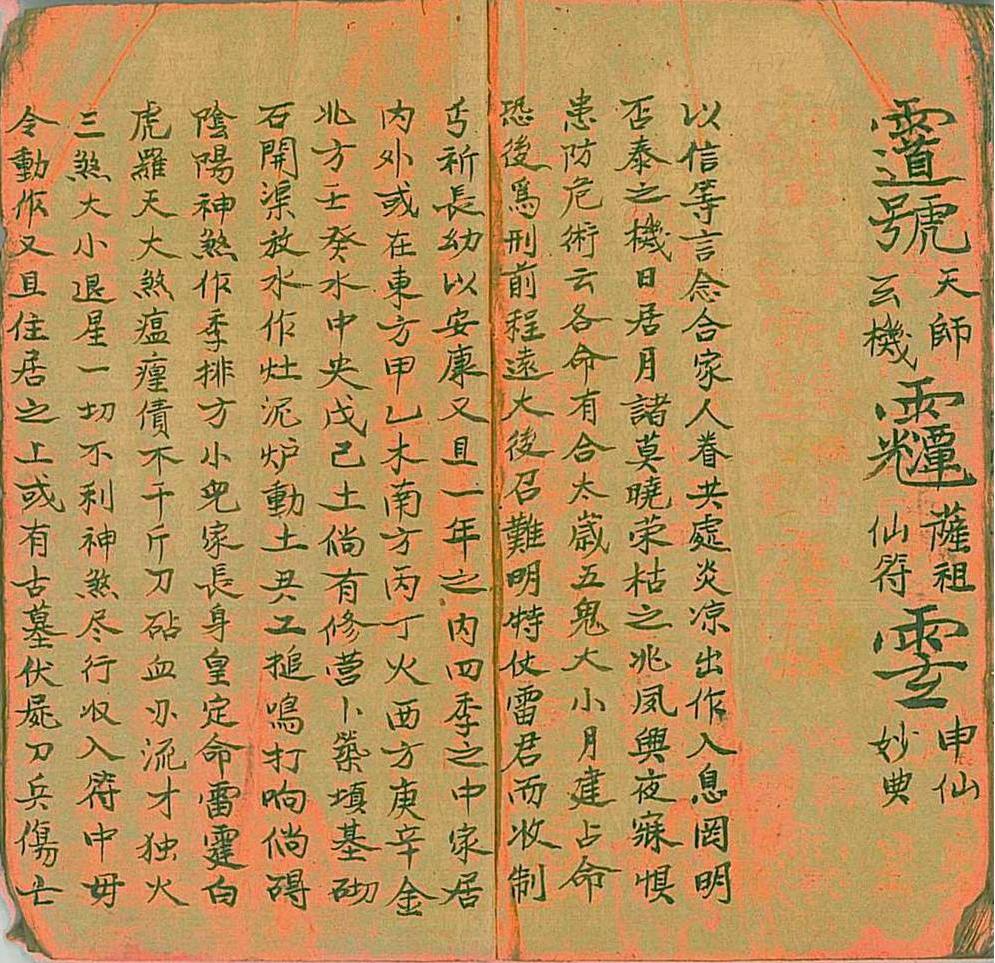 號天師玄機薩祖仙符申仙妙典
以信等言念合家人眷共處炎凉出作入息罔明
否泰之機日居月諸莫曉荣枯之兆夙興夜寐惧
患防危術云各命有合太歲五鬼大小月建占命
恐後爲刑前程遠大後召難明特仗雷君而收制
祈長幼以安康又且一年之内四季之中家居
内外或在東方甲乙木南方丙丁火西方庚辛金
北方壬癸水中央戊己土倘有修营卜築填基砌
石開渠放水作灶泥炉動土兴工搥鳴打响倘碍
陰陽神煞作季排方小兒家長身皇定命雷霆白
虎羅天大煞瘟㾮債不千斤刀砧血刃流才独火
三煞大小退星一切不利神煞尽行收入符中毋
令動作又且住居之上或有古墓伏屍刀兵傷亡